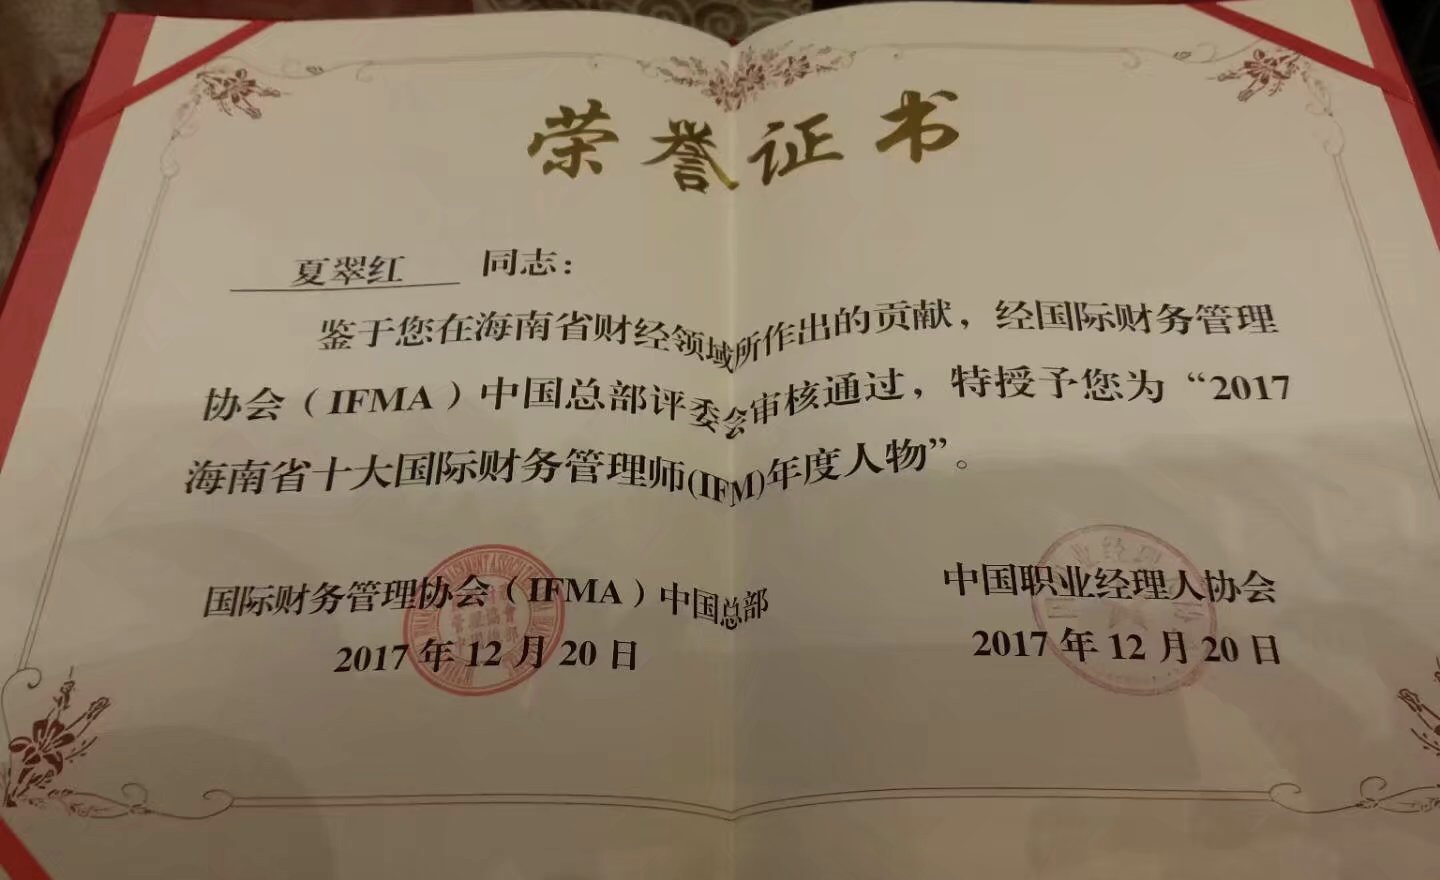 荣誉证书
夏翠红 同志：
鉴于您在海南省财经领域所作出的贡献，经国际财务管理
协会（IFMA）中国总部评委会审核通过，特授予您为“2017
海南省十大国际财务管理师(IFM)年度人物”。
国际财务管理协会（IFMA）中国总部
2017 年 12 月 20 日
中国职业经理人协会
2017 年 12 月 20 日